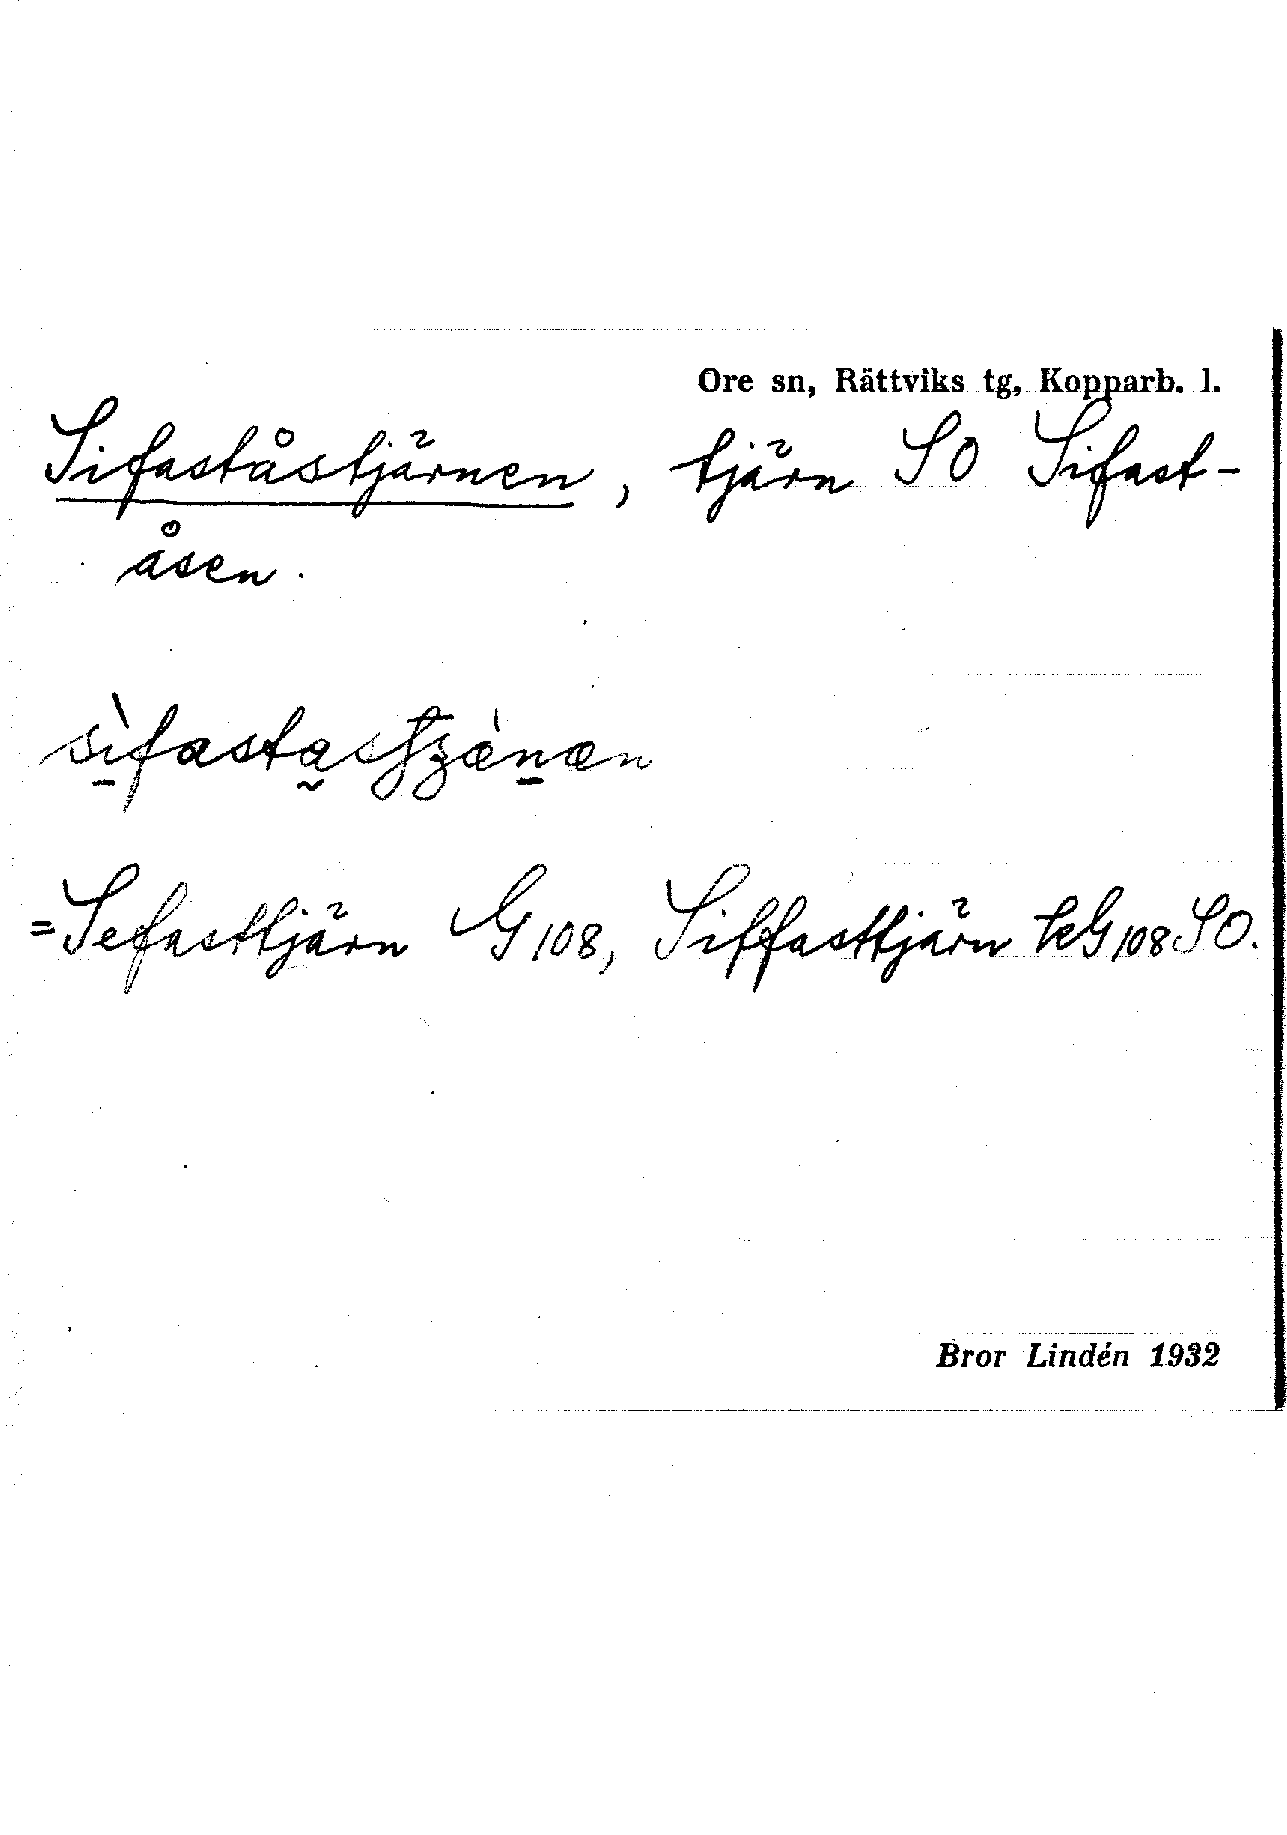 Ore sn, Rättviks tg, Kopparb. l.
Sifaståstjärnen, tjärn SO Sifast-
åsen.
=Sefasttjärn G 108, Siffasttjärn kG 108 SO.
Bror Lindén 1932